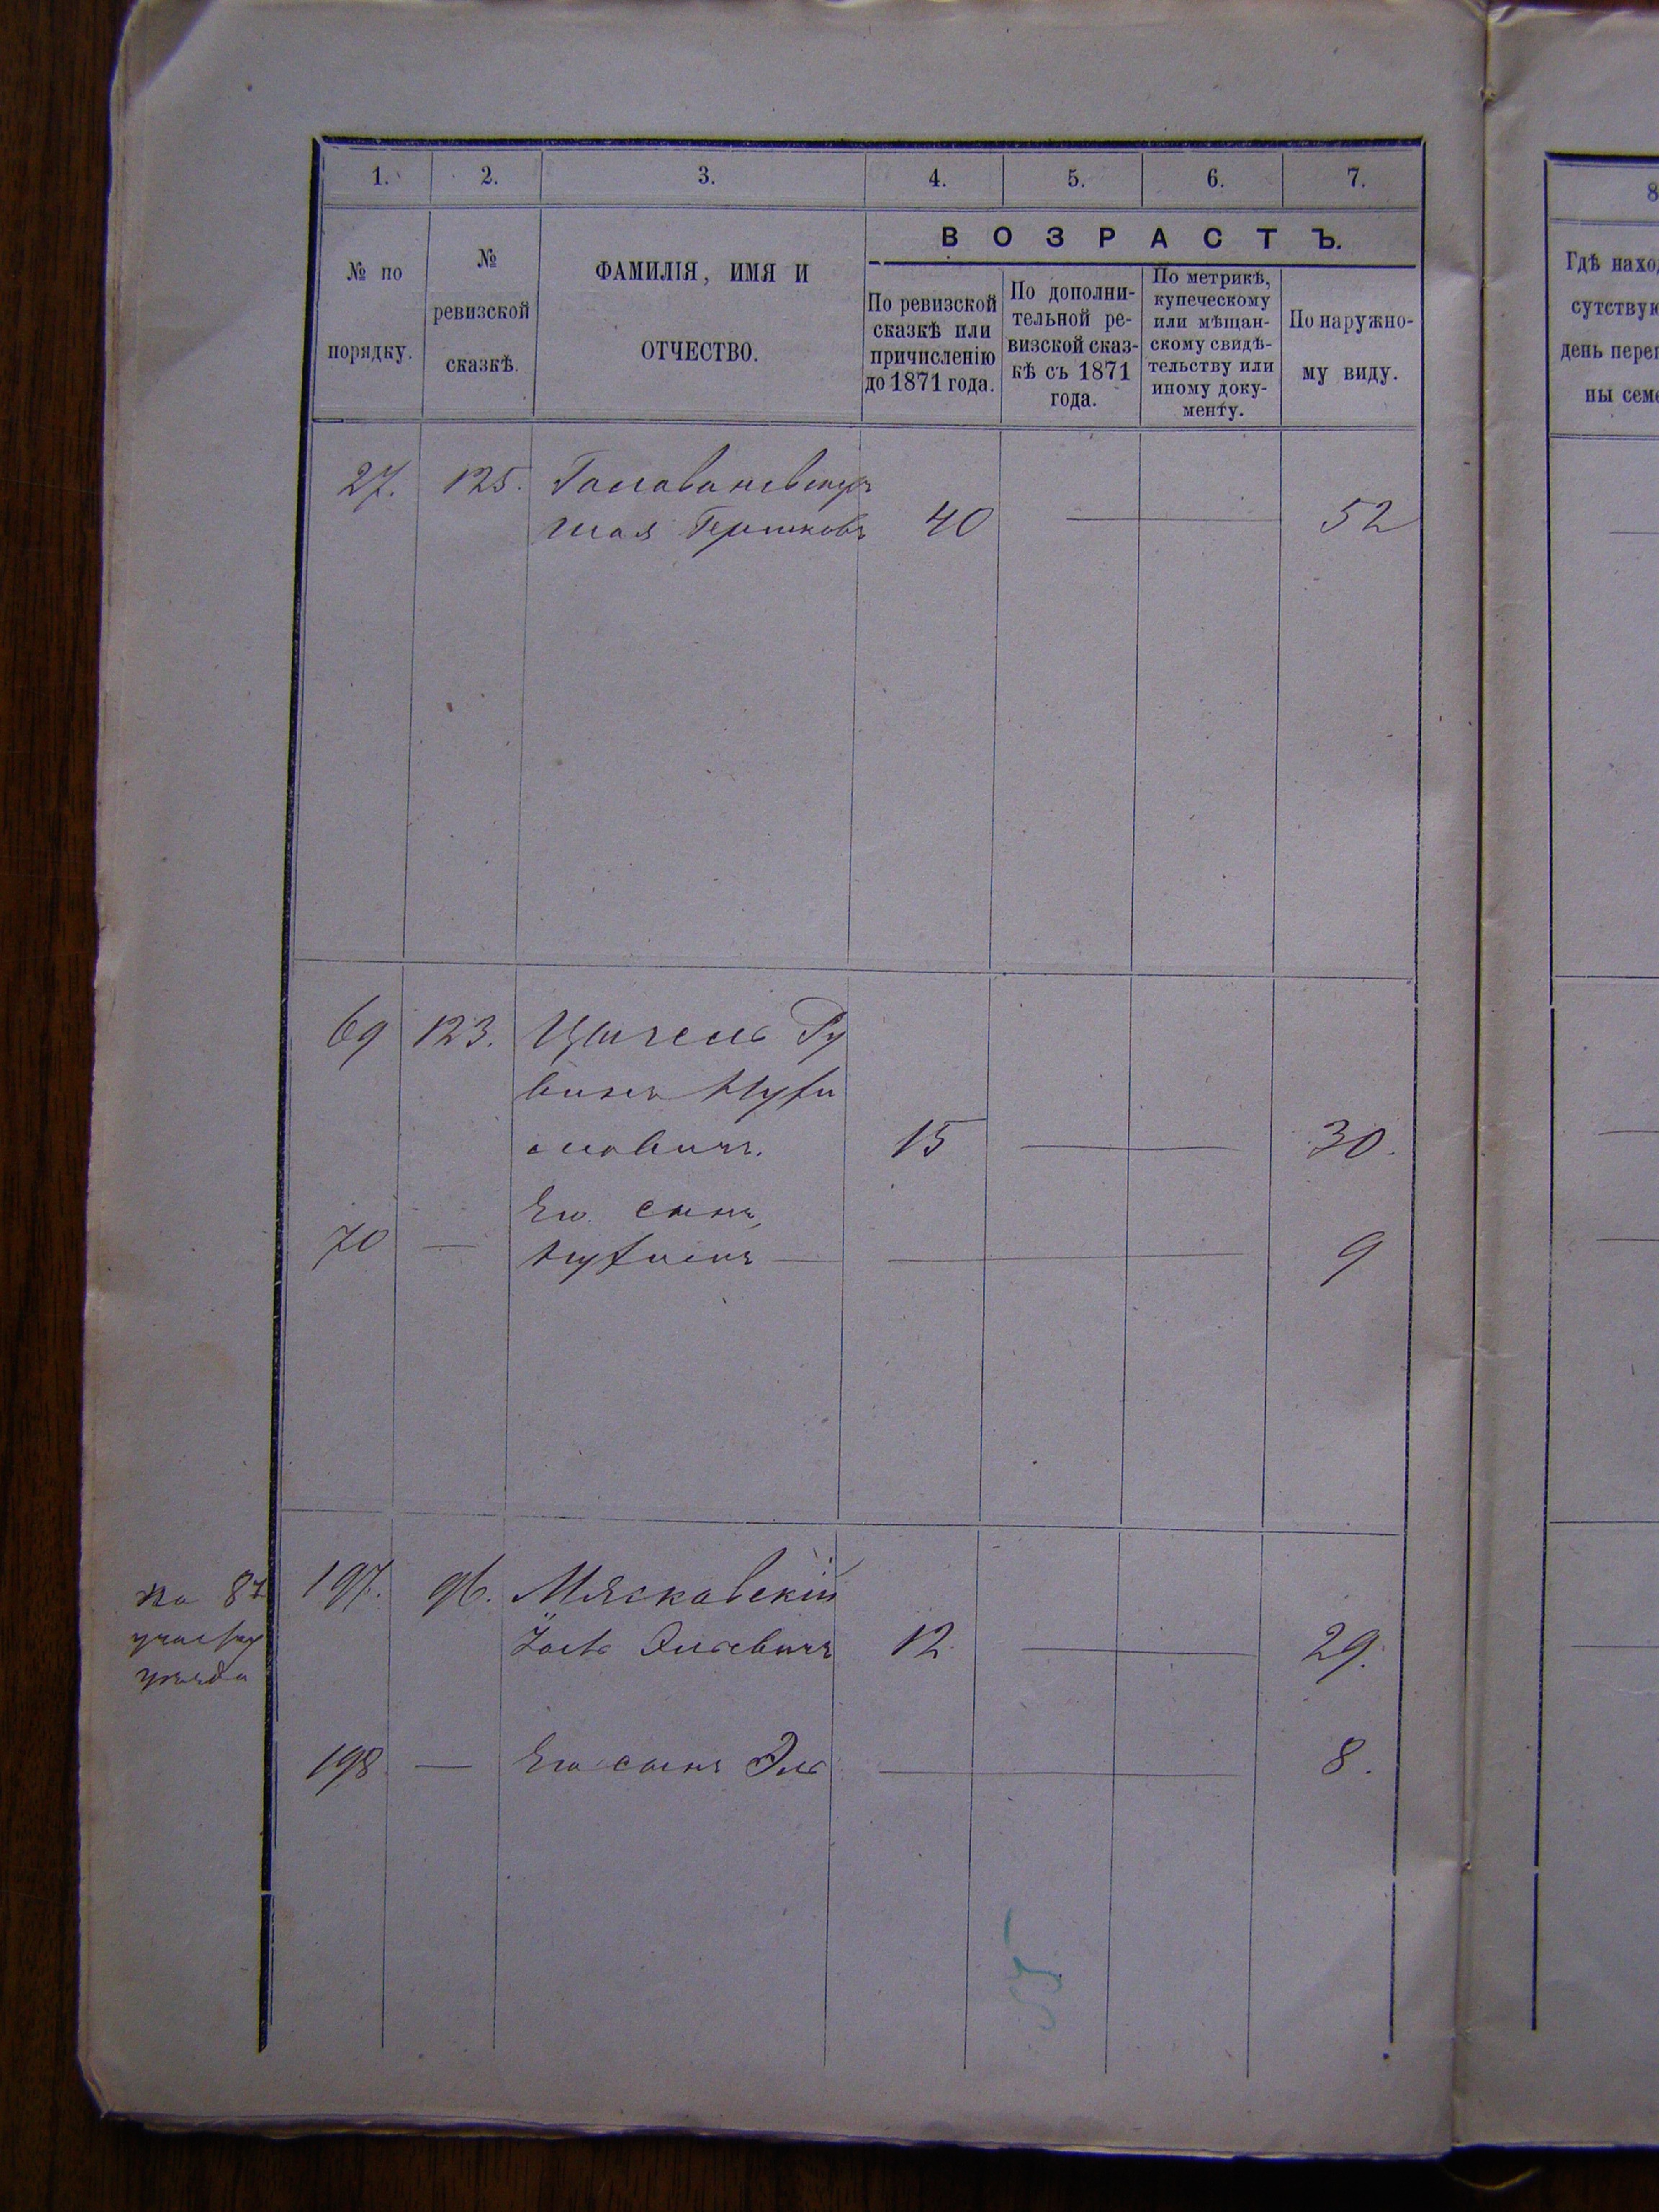 1. 2. 3. 4. 5. 6. 7.
ВОЗРАСТЪ.
№ по
порядку.
№
ревизской
сказкѣ.
ФАМИЛІЯ, ИМЯ И
ОТЧЕСТВО.
По ревизской
сказкѣ или
причисленію
до 1871 года.
По дополни-
тельной ре-
визской сказ-
кѣ съ 1871
года.
По метрикѣ,
купеческому
или мѣщан-
скому свидѣ-
тельству или
иному доку-
менту.
По наружно-
му виду.
27. 125.
Шая Гершковъ 40 — 52
69 123. Ру
винъ
15 — 30.
Его сынъ
70 — — 9
197. 96. Мясковскій
Эльевичъ 12 — 29.
198 — Его сынъ Эль — 8.
на 87
8
Гдѣ наход
сутствую
день переп
ны семе